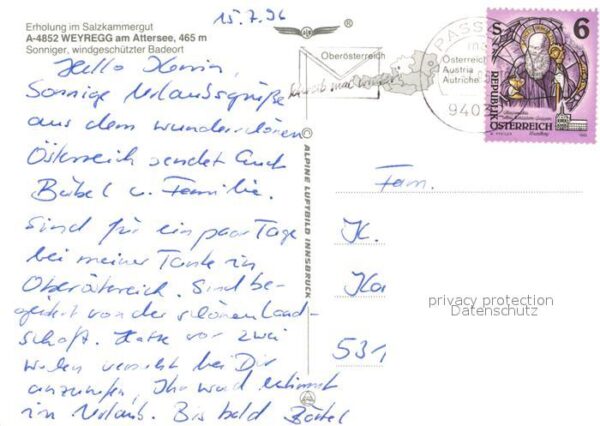 15.7.96
Erholung im Salzkammergut
A-4852 WEYREGG am Attersee, 465 m
Sonniger, windgeschützter Badeort
Hallo
Sonnige Urlaubsgrüße
aus dem wunderschönen
Österreich sendet Euch
Bärbel u. Familie.
Sind für ein paar Tage
bei meiner Tante in
Oberösterreich. Sind be-
geistert von der schönen Land-
schaft. Hatte vor zwei
Wochen versucht bei Dir
anzurufen, Ihr ward
in Urlaub. Bis bald Bärbel
ALPINE LUFTBILD INNSBRUCK
Oberösterreich
Österreich
Austria
Autriche
PASS
940
S 6
REPUBLIK
ÖSTERREICH
Fam.
K.
Ka
531
privacy protection
Datenschutz